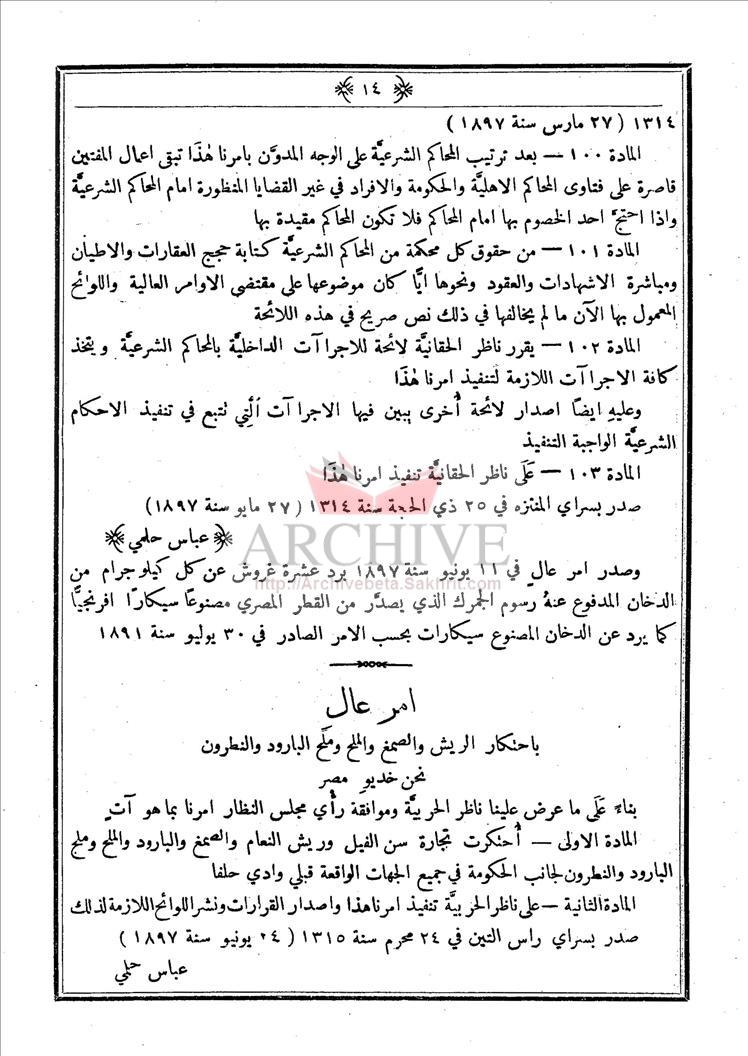 ١٤
١٣١٤ ( ٢٧ مارس سنة ١٨٩٧ )
المادة ١٠٠ — بعد ترتيب المحاكم الشرعيَّة على الوجه المدوَّن بامرنا هٰذَا تبقى اعمال المفتين
قاصرة على فتاوى المحاكم الاهليَّة والحكومة والافراد في غير القضايا المنظورة امام المحاكم الشرعيَّة
واذا احتجَّ احد الخصوم بها امام المحاكم فلا تكون المحاكم مقيدة بها
المادة ١٠١ — من حقوق كل محكمة من المحاكم الشرعيَّة كتابة حجج العقارات والاطيان
ومباشرة الاشهادات والعقود ونحوها ايًّا كان موضوعها على مقتضى الاوامر العالية واللوائح
المعمول بها الآن ما لم يخالفها في ذلك نص صريح في هذه اللائحة
المادة ١٠٢ — يقرر ناظر الحقانيَّة لائحة للاجراآت الداخليَّة بالمحاكم الشرعيَّة ويتخذ
كافة الاجراآت اللازمة لتنفيذ امرنا هٰذَا
وعليهِ ايضًا اصدار لائحة أُخرى يبين فيها الاجراآت الَّتِي تتبع في تنفيذ الاحكام
الشرعيَّة الواجبة التنفيذ
المادة ١٠٣ — عَلَى ناظر الحقانيَّة تنفيذ امرنا هٰذَا
صدر بسراي المنتزه في ٢٥ ذي الحجة سنة ١٣١٤ ( ٢٧ مايو سنة ١٨٩٧)
عباس حلمي
ARCHIVE
http://Archivebeta.Sakhrit.com
وصدر امر عالٍ في ١١ يونيو سنة ١٨٩٧ برد عشرة غروش عن كل كيلو جرام من
الدخان المدفوع عنهُ رسوم الجمرك الذي يصدَّر من القطر المصري مصنوعًا سيكارًا افرنجيًّا
كما يرد عن الدخان المصنوع سيكارات بحسب الامر الصادر في ٣٠ يوليو سنة ١٨٩١
امر عال
باحتكار الريش والصمغ والملح وملح البارود والنطرون
نحن خديو مصر
بناءً عَلَى ما عرض علينا ناظر الحربيَّة وموافقة رأْي مجلس النظار امرنا بما هو آتٍ
المادة الاولى — أُحتكرت تجارة سن الفيل وريش النعام والصمغ والبارود والملح وملح
البارود والنطرون لجانب الحكومة في جميع الجهات الواقعة قبلي وادي حلفا
المادة الثانية — على ناظر الحربيَّة تنفيذ امرنا هذا واصدار القرارات ونشر اللوائح اللازمة لذلك
صدر بسراي راس التين في ٢٤ محرم سنة ١٣١٥ ( ٢٤ يونيو سنة ١٨٩٧ )
عباس حلمي